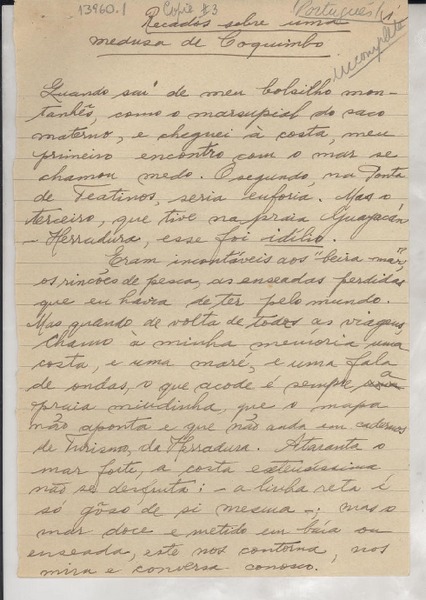 13960.1 Copia #3 Português (1
Recados sobre uma incompleto
medusa de Coquimbo
Quando saí de meu bolsilho mon-
tanhês, como o marsupial do saco
materno, e cheguei à costa, meu
primeiro encontro com o mar se
chamou medo. O segundo, na Ponta
de Teatinos, seria euforia. Mas o
terceiro, que tive na praia Guayacán
- Herradura, esse foi idílio.
Eram incontáveis aos "beira-mar",
os rincões de pesca, as enseadas perdidas
que eu havia de ter pelo mundo.
Mas quando de volta de todas as viagens,
chamo à minha memória uma
costa, e uma maré, e uma fala
de ondas, o que acode é sempre a
praia miudinha, que o mapa
não aponta e que não anda em cadernos
de Turismo, da Herradura. Ataranta o
mar forte, a costa extensíssima
não se desfruta: - a linha reta é
só gôso de si mesma -; mas o
mar doce e metido em baía ou
enseada, este nos contorna, nos
mira e conversa conosco.